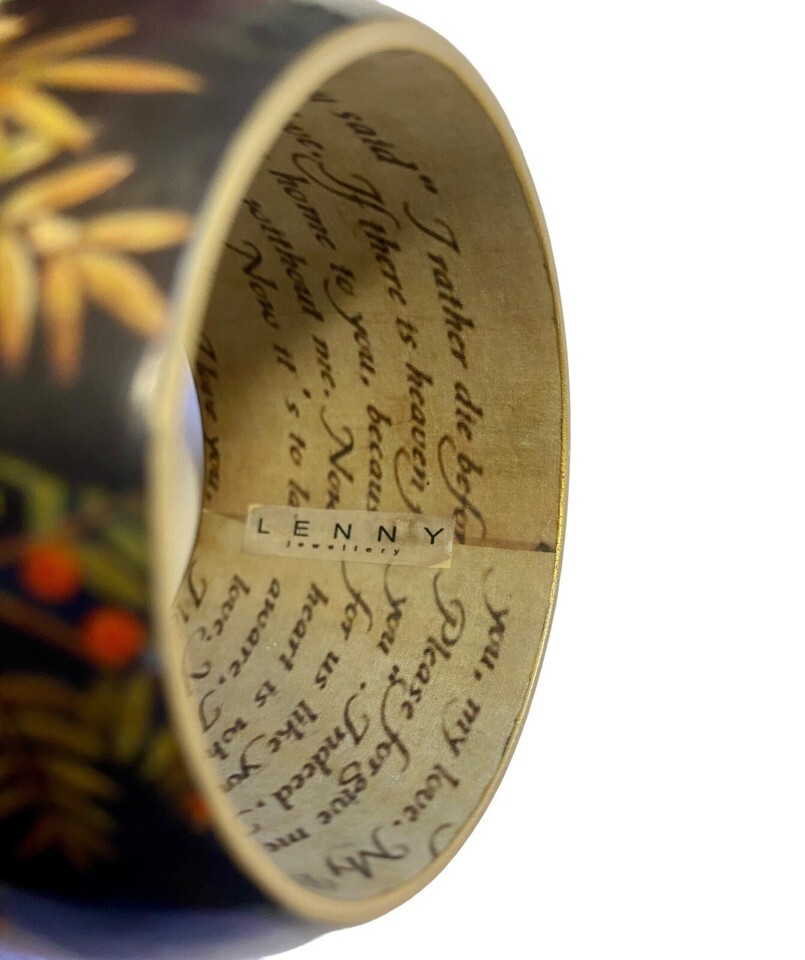 said " I rather die befor
If there is heaven,
home to you, becaus
without me. Now
Now it 's to la
you,
LENNY
jewellery
you, my love. My
Please forgive me
you ". Indeed,
for us like yo
heart is wh
aware.
love,